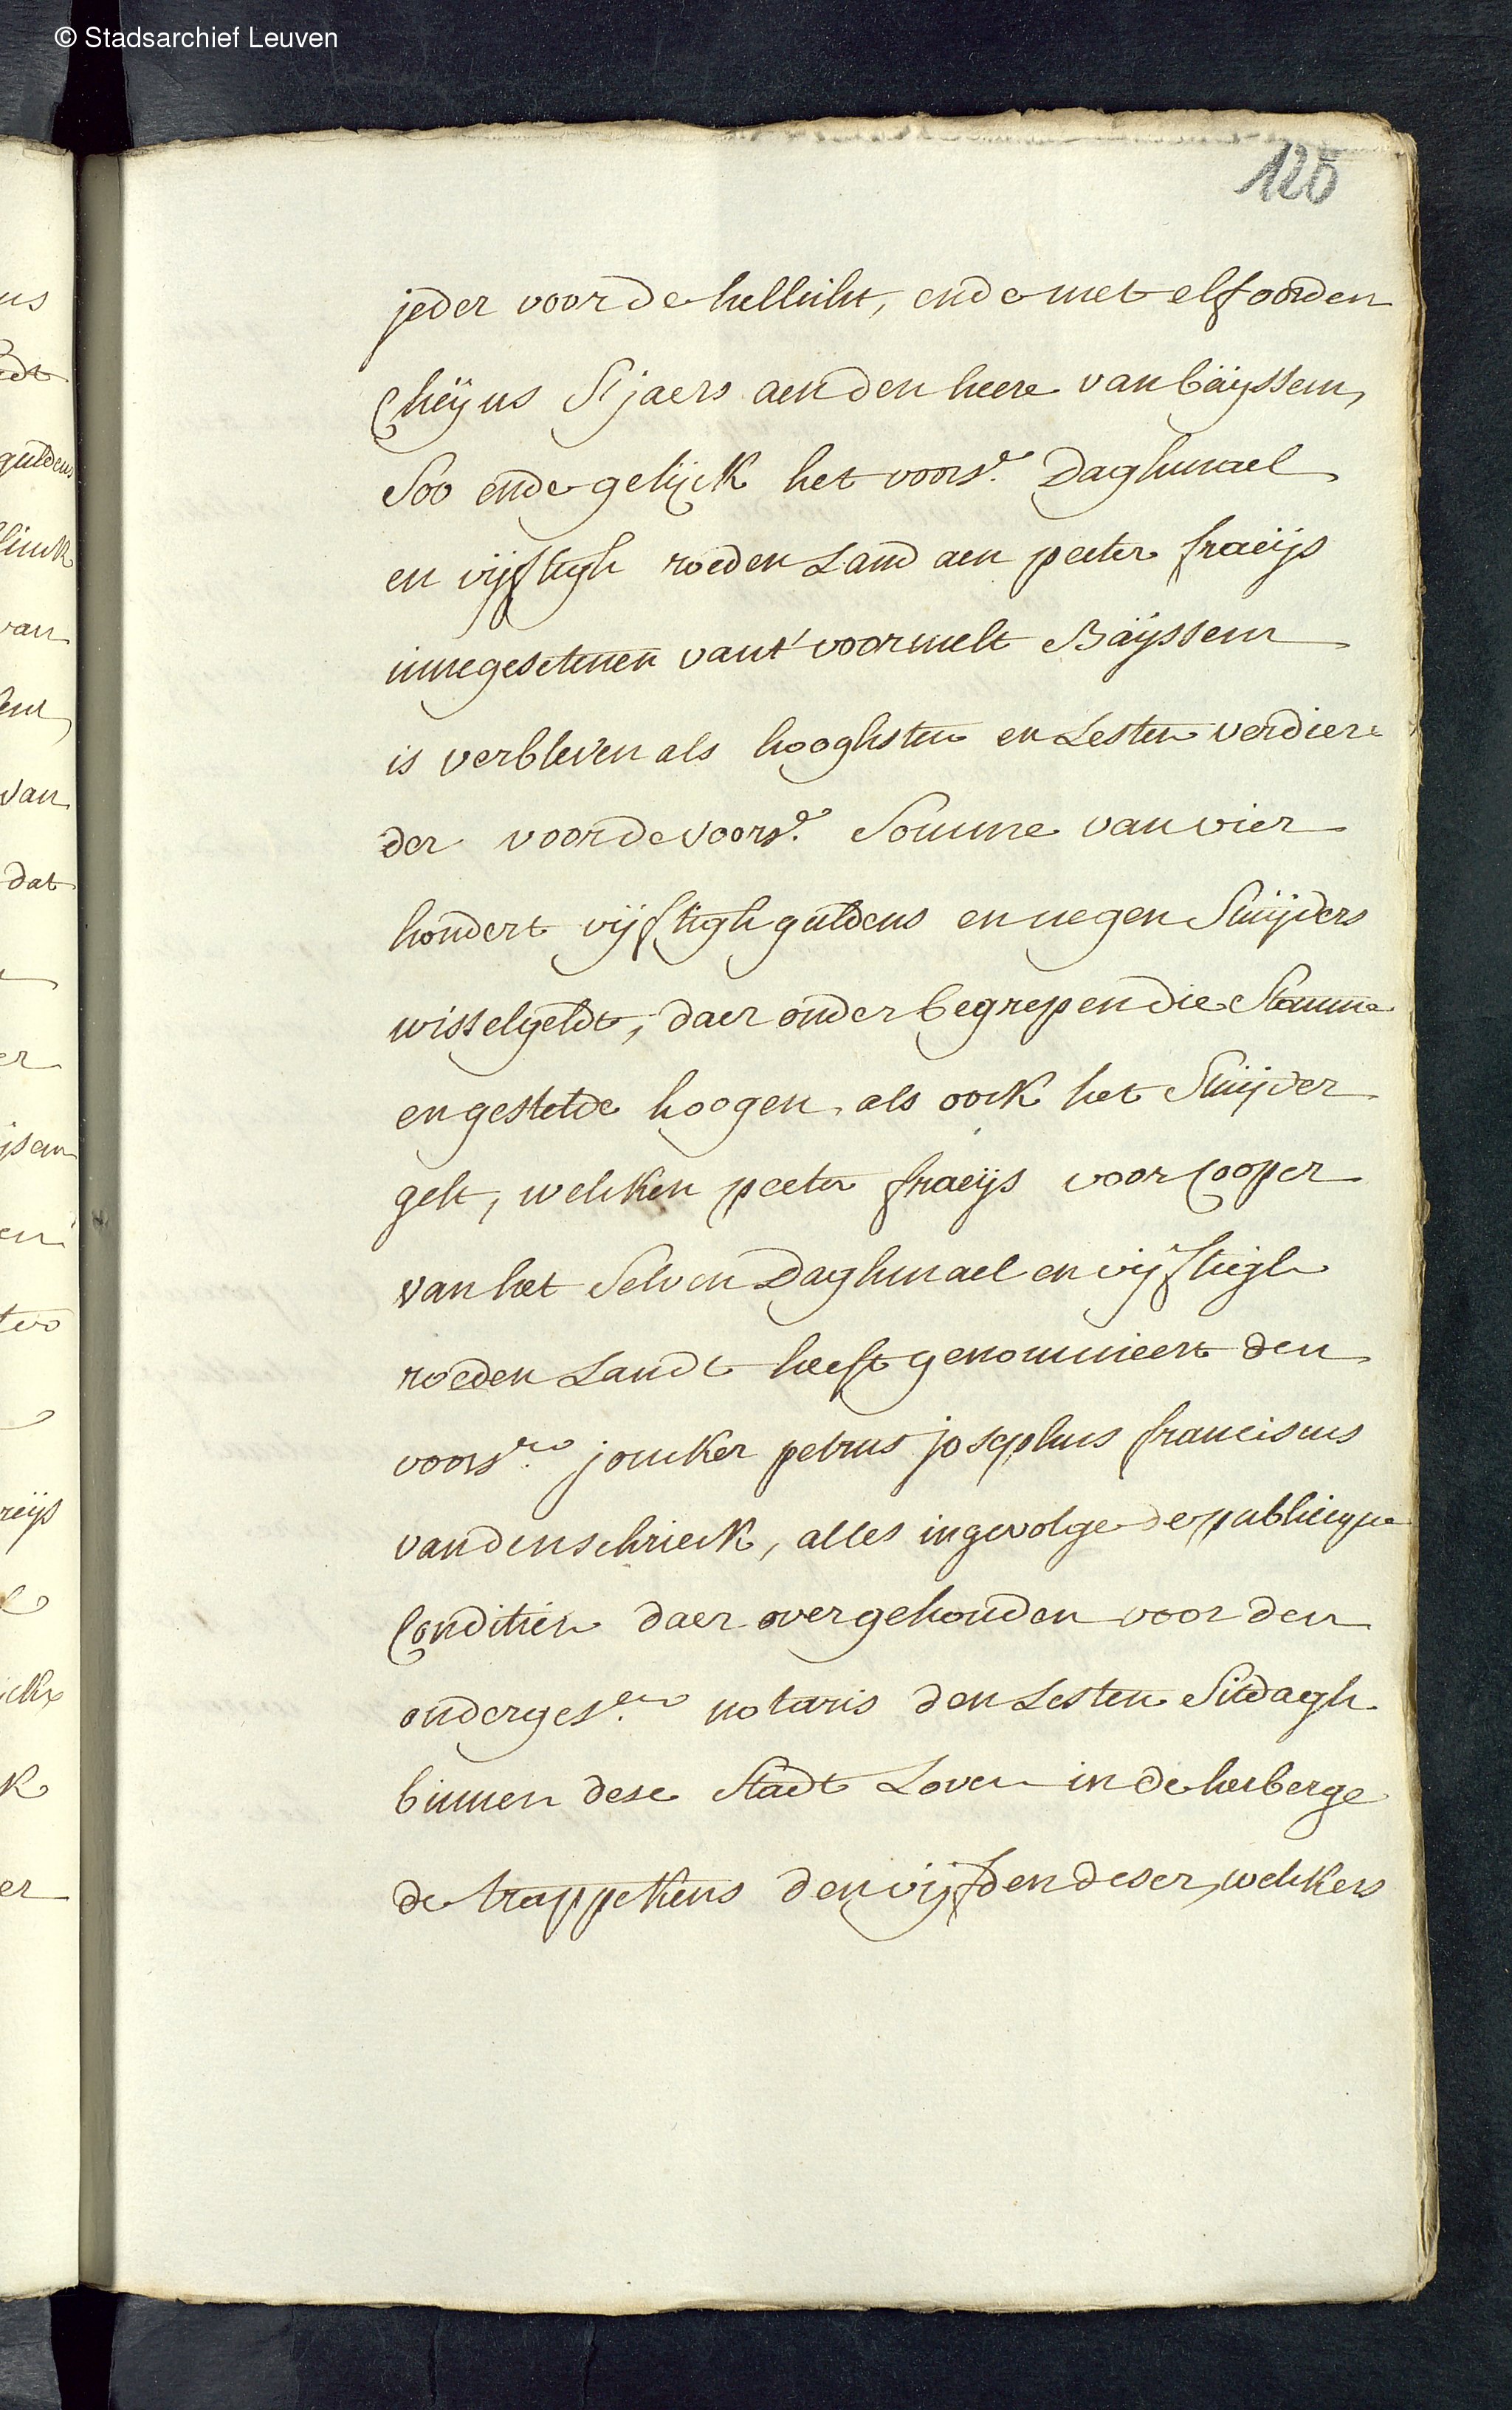 © Stadsarchief Leuven
125
jeder voor de hellicht, ende met elf oorden
Cheijns Sjaers aen den heere van baijssem,
Soo ende gelijck het voors.e Daghmael
en vijftigh roeden Land aen peeter fraeijs
innegesetenen vant' voormelt Baijssem
is verbleven als hooghsten en Lesten verdiere
der voor de voors.e Somme van vier
hondert vijftigh guldens en negen Stuijvers
wisselgeldt, daer onder begrepen die Stamme
en gestelde hoogen, als oock het Stuijver
gelt, welcken peeter fraeijs voor Cooper
van het Selven Daghmael en vijftigh
roeden Landt heeft genomineert den
voors.en joncker petrus josephus franciscus
vandenschrieck, alles ingevolge de publicque
Conditien daer over gehouden voor den
onderges.en notaris den Lesten Sitdagh
binnen dese Stadt Loven in de herberge
de trappekens den vijfden deser, welckers